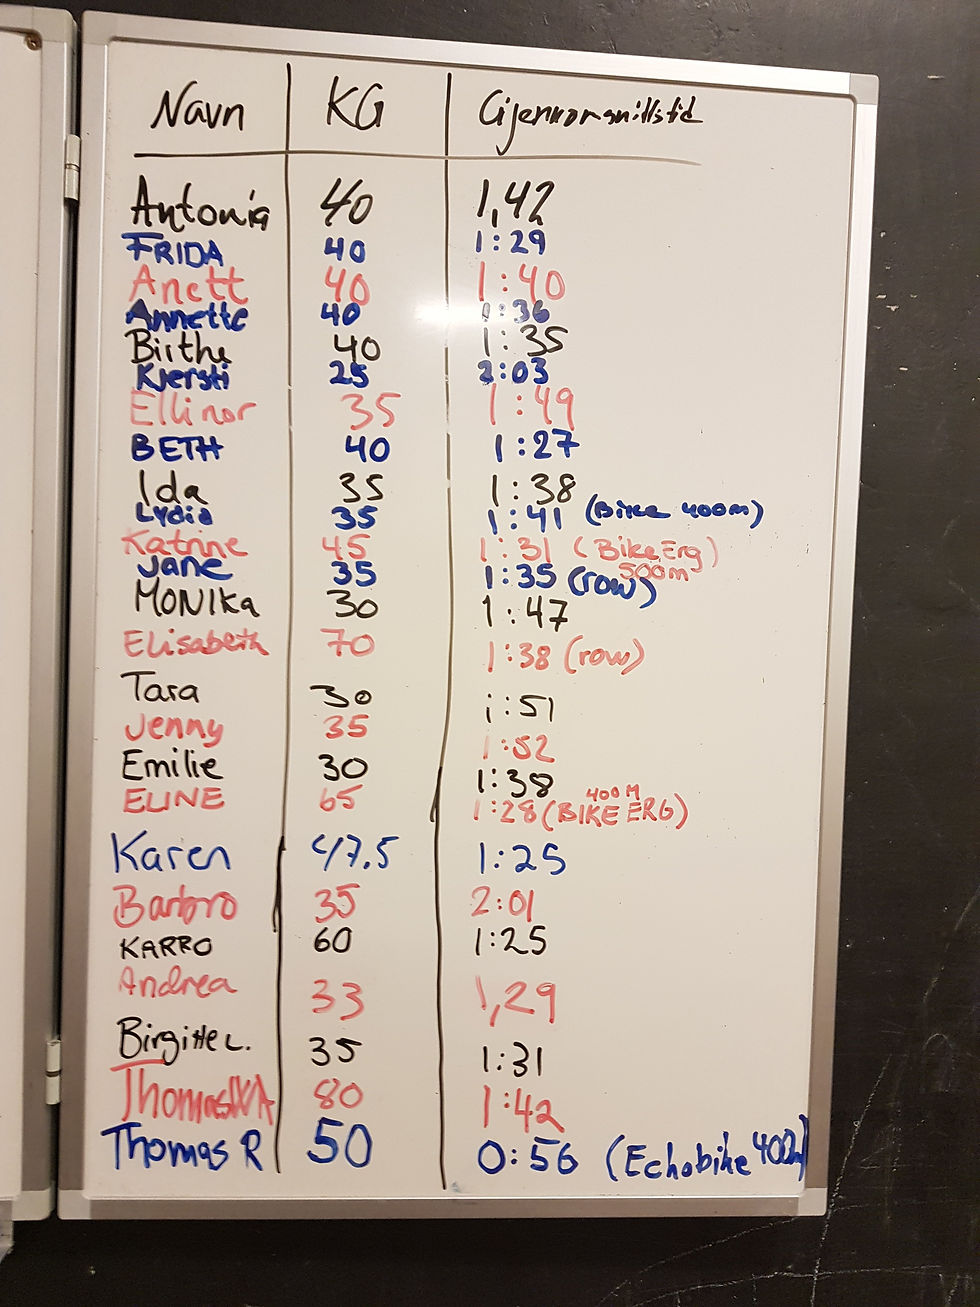 Navn KG Gjennomsnittstid
Antonia 40 1,42
FRIDA 40 1:29
Anett 40 1:40
Annette 40 1:36
Birthe 40 1:35
Kjersti 25 2:03
Ellinor 35 1:49
BETH 40 1:27
Ida 35 1:38
Lydia 35 1:41 (Bike 400m)
Katrine 45 1:31 (BikeErg) 500m
Jane 35 1:35 (row)
MONIKa 30 1:47
Elisabeth 70 1:38 (row)
Tara 30 1:51
Jenny 35 1:52
Emilie 30 1:38
ELINE 65 1:28 (BIKE ERG) 400M
Karen 47.5 1:25
Barbro 35 2:01
KARRO 60 1:25
Andrea 33 1,29
Birgitte L. 35 1:31
Thomas 80 1:42
Thomas R 50 0:56 (Echobike 400m)